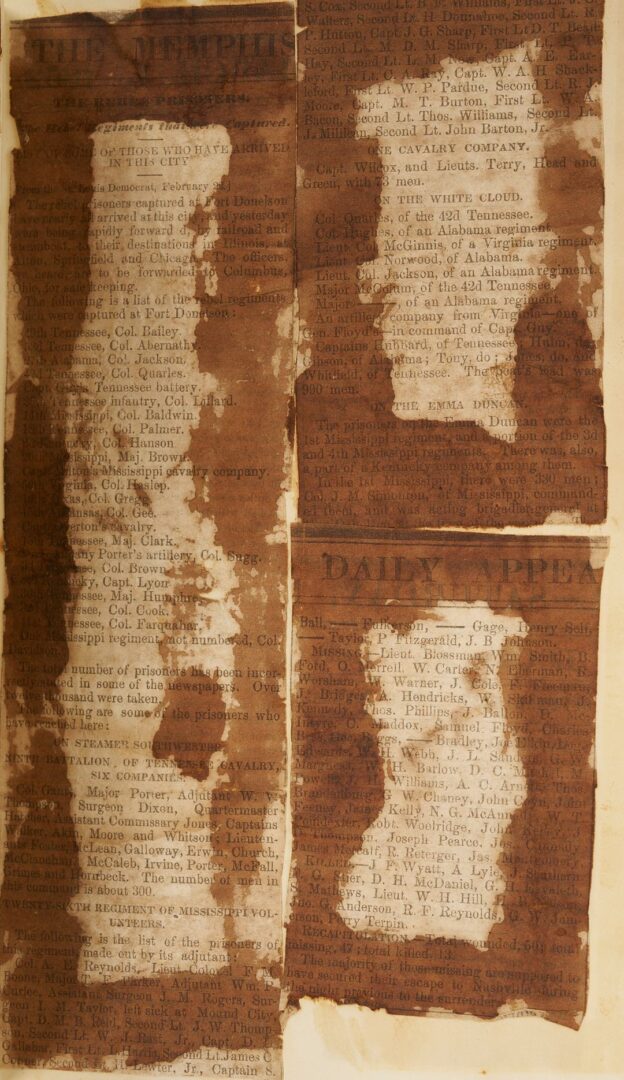 THE MEMPHIS
THE REBEL PRISONERS.
The Rebel Regiments that were Captured.
OF SOME OF THOSE WHO HAVE ARRIVED
IN THIS CITY
From the St. Louis Democrat, February
The rebel prisoners captured at Fort Donelson
have nearly all arrived at this city and yesterday
were being rapidly forward by railroad and
steamboat to their destinations in Illinois, at
Alton, Springfield and Chicago. The officers,
we heard, are to be forwarded to Columbus,
Ohio, for safe keeping.
The following is a list of the rebel regiments
which were captured at Fort Donelson:
Tennessee, Col. Bailey.
Tennessee, Col. Abernathy.
Alabama, Col. Jackson.
Tennessee, Col. Quarles.
Capt. Tennessee battery.
Tennessee infantry, Col. Lillard.
Mississippi, Col. Baldwin.
Tennessee, Col. Palmer.
Col. Hanson
Mississippi, Maj. Brown.
Mississippi cavalry company.
Col. Haslep.
Texas, Col. Gregg
Arkansas, Col. Gee.
cavalry.
Tennessee, Maj. Clark.
company Porter's artillery, Col. Sugg.
Tennessee, Col. Brown
Capt. Lyon
Tennessee, Maj. Humphre
Tennessee, Col. Cook.
Tennessee, Col. Farquahar.
One Mississippi regiment, not numbered, Col.
Davidson.
The total number of prisoners has been incor-
rectly stated in some of the newspapers. Over
twelve thousand were taken.
The following are some of the prisoners who
have reached here:
ON STEAMER SOUTHWESTER.
NINTH BATTALION, OF TENNESSEE CAVALRY,
SIX COMPANIES.
Col. Major Porter, Adjutant W.
Surgeon Dixon, Quartermaster
Assistant Commissary Jones, Captains
Moore and Whitson, Lieuten-
ants McLean, Galloway, Erwin, Church,
McCaleb, Irvine, Porter, McFall,
and Hornbeck. The number of men in
this command is about 300.
TWENTY-SIXTH REGIMENT OF MISSISSIPPI VOL-
UNTEERS.
The following is the list of the prisoners of
this regiment, made out by its adjutant:
Col. A. E. Reynolds, Lieut. Colonel F. M.
Boone, Major Parker, Adjutant Wm.
Assistant Surgeon J. M. Rogers, Sur-
geon I. M. Taylor, left sick at Mound City,
Capt. D. M. B. Reid, Second Lt. J. W. Thomp-
son, Second Lt. W. J. Rast, Jr., Capt. D.
First Lt. Second Lt. James C
Second Lt. H. Lewter, Jr., Captain S.
S. Cox, Second Lt. B. F. Williams, First Lt.
Walters, Second Lt. H. Donnahoe, Second Lt. R.
P. Hutton, Capt. J. G. Sharp, First Lt D. T. Beall
Second Lt. M. D. M. Sharp, First Lt.
Hay, Second Lt. L. M. Capt. A. E. Ear-
ley, First Lt. C. A. Ray, Capt. W. A. H Shack-
leford, First Lt W. P. Pardue, Second Lt. R.
Moore, Capt. M. T. Burton, First Lt. W. A.
Bacon, Second Lt. Thos. Williams, Second Lt.
J. Milliean, Second Lt. John Barton, Jr.
ONE CAVALRY COMPANY.
Capt. Wilcox, and Lieuts. Terry, Head and
Green, with 73 men.
ON THE WHITE CLOUD.
Col. Quarles, of the 42d Tennessee.
Col. Hughes, of an Alabama regiment.
Lieut. Col. McGinnis, of a Virginia regiment.
Norwood, of Alabama.
Lieut. Col. Jackson, of an Alabama regiment.
Major McColum, of the 42d Tennessee.
Major —, of an Alabama regiment.
An artillery company from Virginia—one of
Gen. Floyd's—in command of Capt. Guy.
Captains Hubbard, of Tennessee;
Gibson, of Alabama; Tony, do; Jones, do, and
Whitfield, of Tennessee. The boat's load was
990 men.
ON THE EMMA DUNCAN.
The prisoners on the Emma Duncan were the
1st Mississippi regiment, and a portion of the 3d
and 4th Mississippi regiments. There was, also,
a part of a Kentucky company among them.
In the 1st Mississippi, there were 330 men;
Col. J. M. Simonton, of Mississippi, command-
ed them, and was acting brigadier general at
DAILY APPEA
Ball, — Fulkerson, — Gage, Henry Self,
— Taylor, P Fitzgerald, J. B. Johnson.
MISSING—Lieut. Blossman, Wm. Smith, B.
Ford, O. W. Carter, N. Eberman, R.
Worsham, Warner, J. Cole, F. Freeman,
J. Bridges, A. Hendricks, W.
Kennedy, Thos. Phillips, J. Ballon,
Maddox, Samuel Floyd, Charles
— Bradley,
Edwards, H. Webb, J. L. G. W.
H. Barlow, D. C.
Williams, A. C.
G. W. Chaney, John
Kelly, N. G.
Robt. Woolridge, John
Joseph Pearce, Jas.
James R. Reterger, Jas.
KILLED—J. P. Wyatt, A Lyle, J.
D. H. McDaniel, G. H.
S. Mathews, Lieut. W. H. Hill,
G. Anderson, R. F. Reynolds, G. W. Jam
Perry Terpin.
RECAPITULATION—Total wounded, 60; total
missing, 47; total killed, 13.
The majority of these missing are supposed to
have secured their escape to Nashville during
the night previous to the surrender.